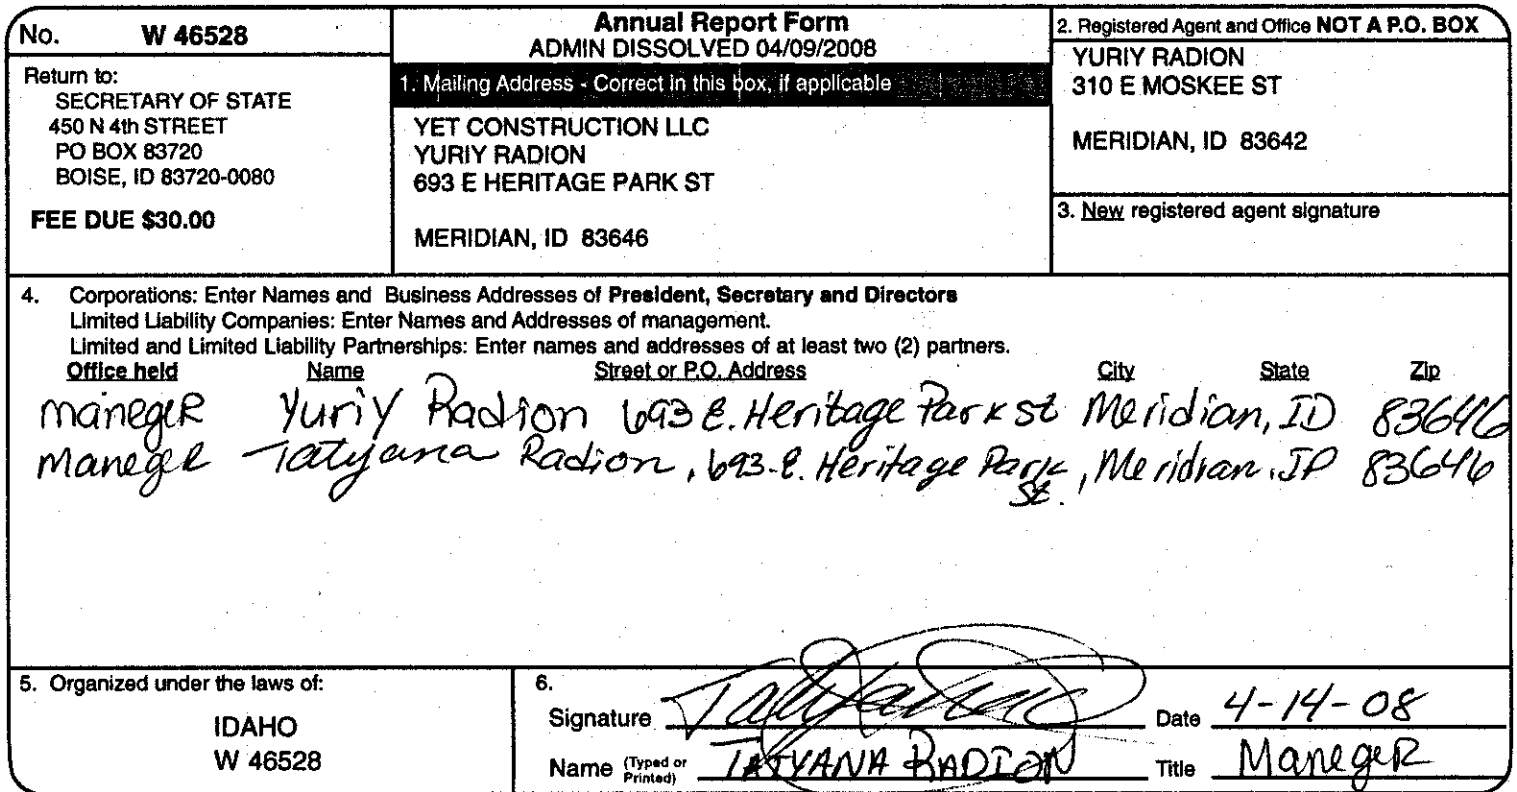 No. W 46528
Return to:
SECRETARY OF STATE
450 N 4th STREET
PO BOX 83720
BOISE, ID 83720-0080
FEE DUE $30.00
Annual Report Form
ADMIN DISSOLVED 04/09/2008
1. Mailing Address - Correct in this box, if applicable
YET CONSTRUCTION LLC
YURIY RADION
693 E HERITAGE PARK ST
MERIDIAN, ID 83646
2. Registered Agent and Office NOT A P.O. BOX
YURIY RADION
310 E MOSKEE ST
MERIDIAN, ID 83642
3. New registered agent signature
4. Corporations: Enter Names and Business Addresses of President, Secretary and Directors
Limited Liability Companies: Enter Names and Addresses of management.
Limited and Limited Liability Partnerships: Enter names and addresses of at least two (2) partners.
Office held Name Street or P.O. Address City State Zip
manegeR Yuriy Radion 693 E. Heritage Park st Meridian, ID 83646
Maneger Tatyana Radion, 693 E. Heritage Park St., Meridian, ID 83646
5. Organized under the laws of:
IDAHO
W 46528
6.
Signature Tatyana Date 4-14-08
Name (Typed or Printed) TATYANA RADION Title ManegeR